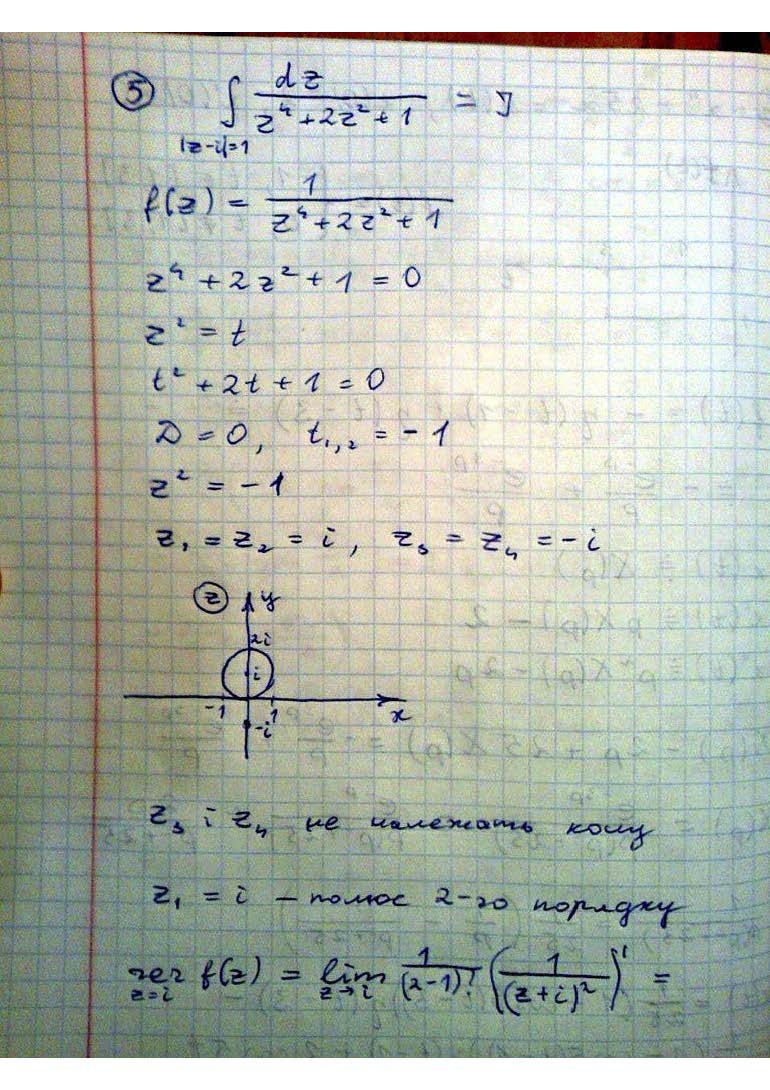 5 ∫ dz / (z⁴ + 2z² + 1) = I
|z-i|=1
f(z) = 1 / (z⁴ + 2z² + 1)
z⁴ + 2z² + 1 = 0
z² = t
t² + 2t + 1 = 0
D = 0, t₁,₂ = -1
z² = -1
z₁ = z₂ = i, z₃ = z₄ = -i
z y
2i
i
-1 1 x
-i
z₃ і z₄ не належать колу
z₁ = i - полюс 2-го порядку
res f(z) = lim 1/(2-1)! (1/(z+i)²)' =
z=i z→i